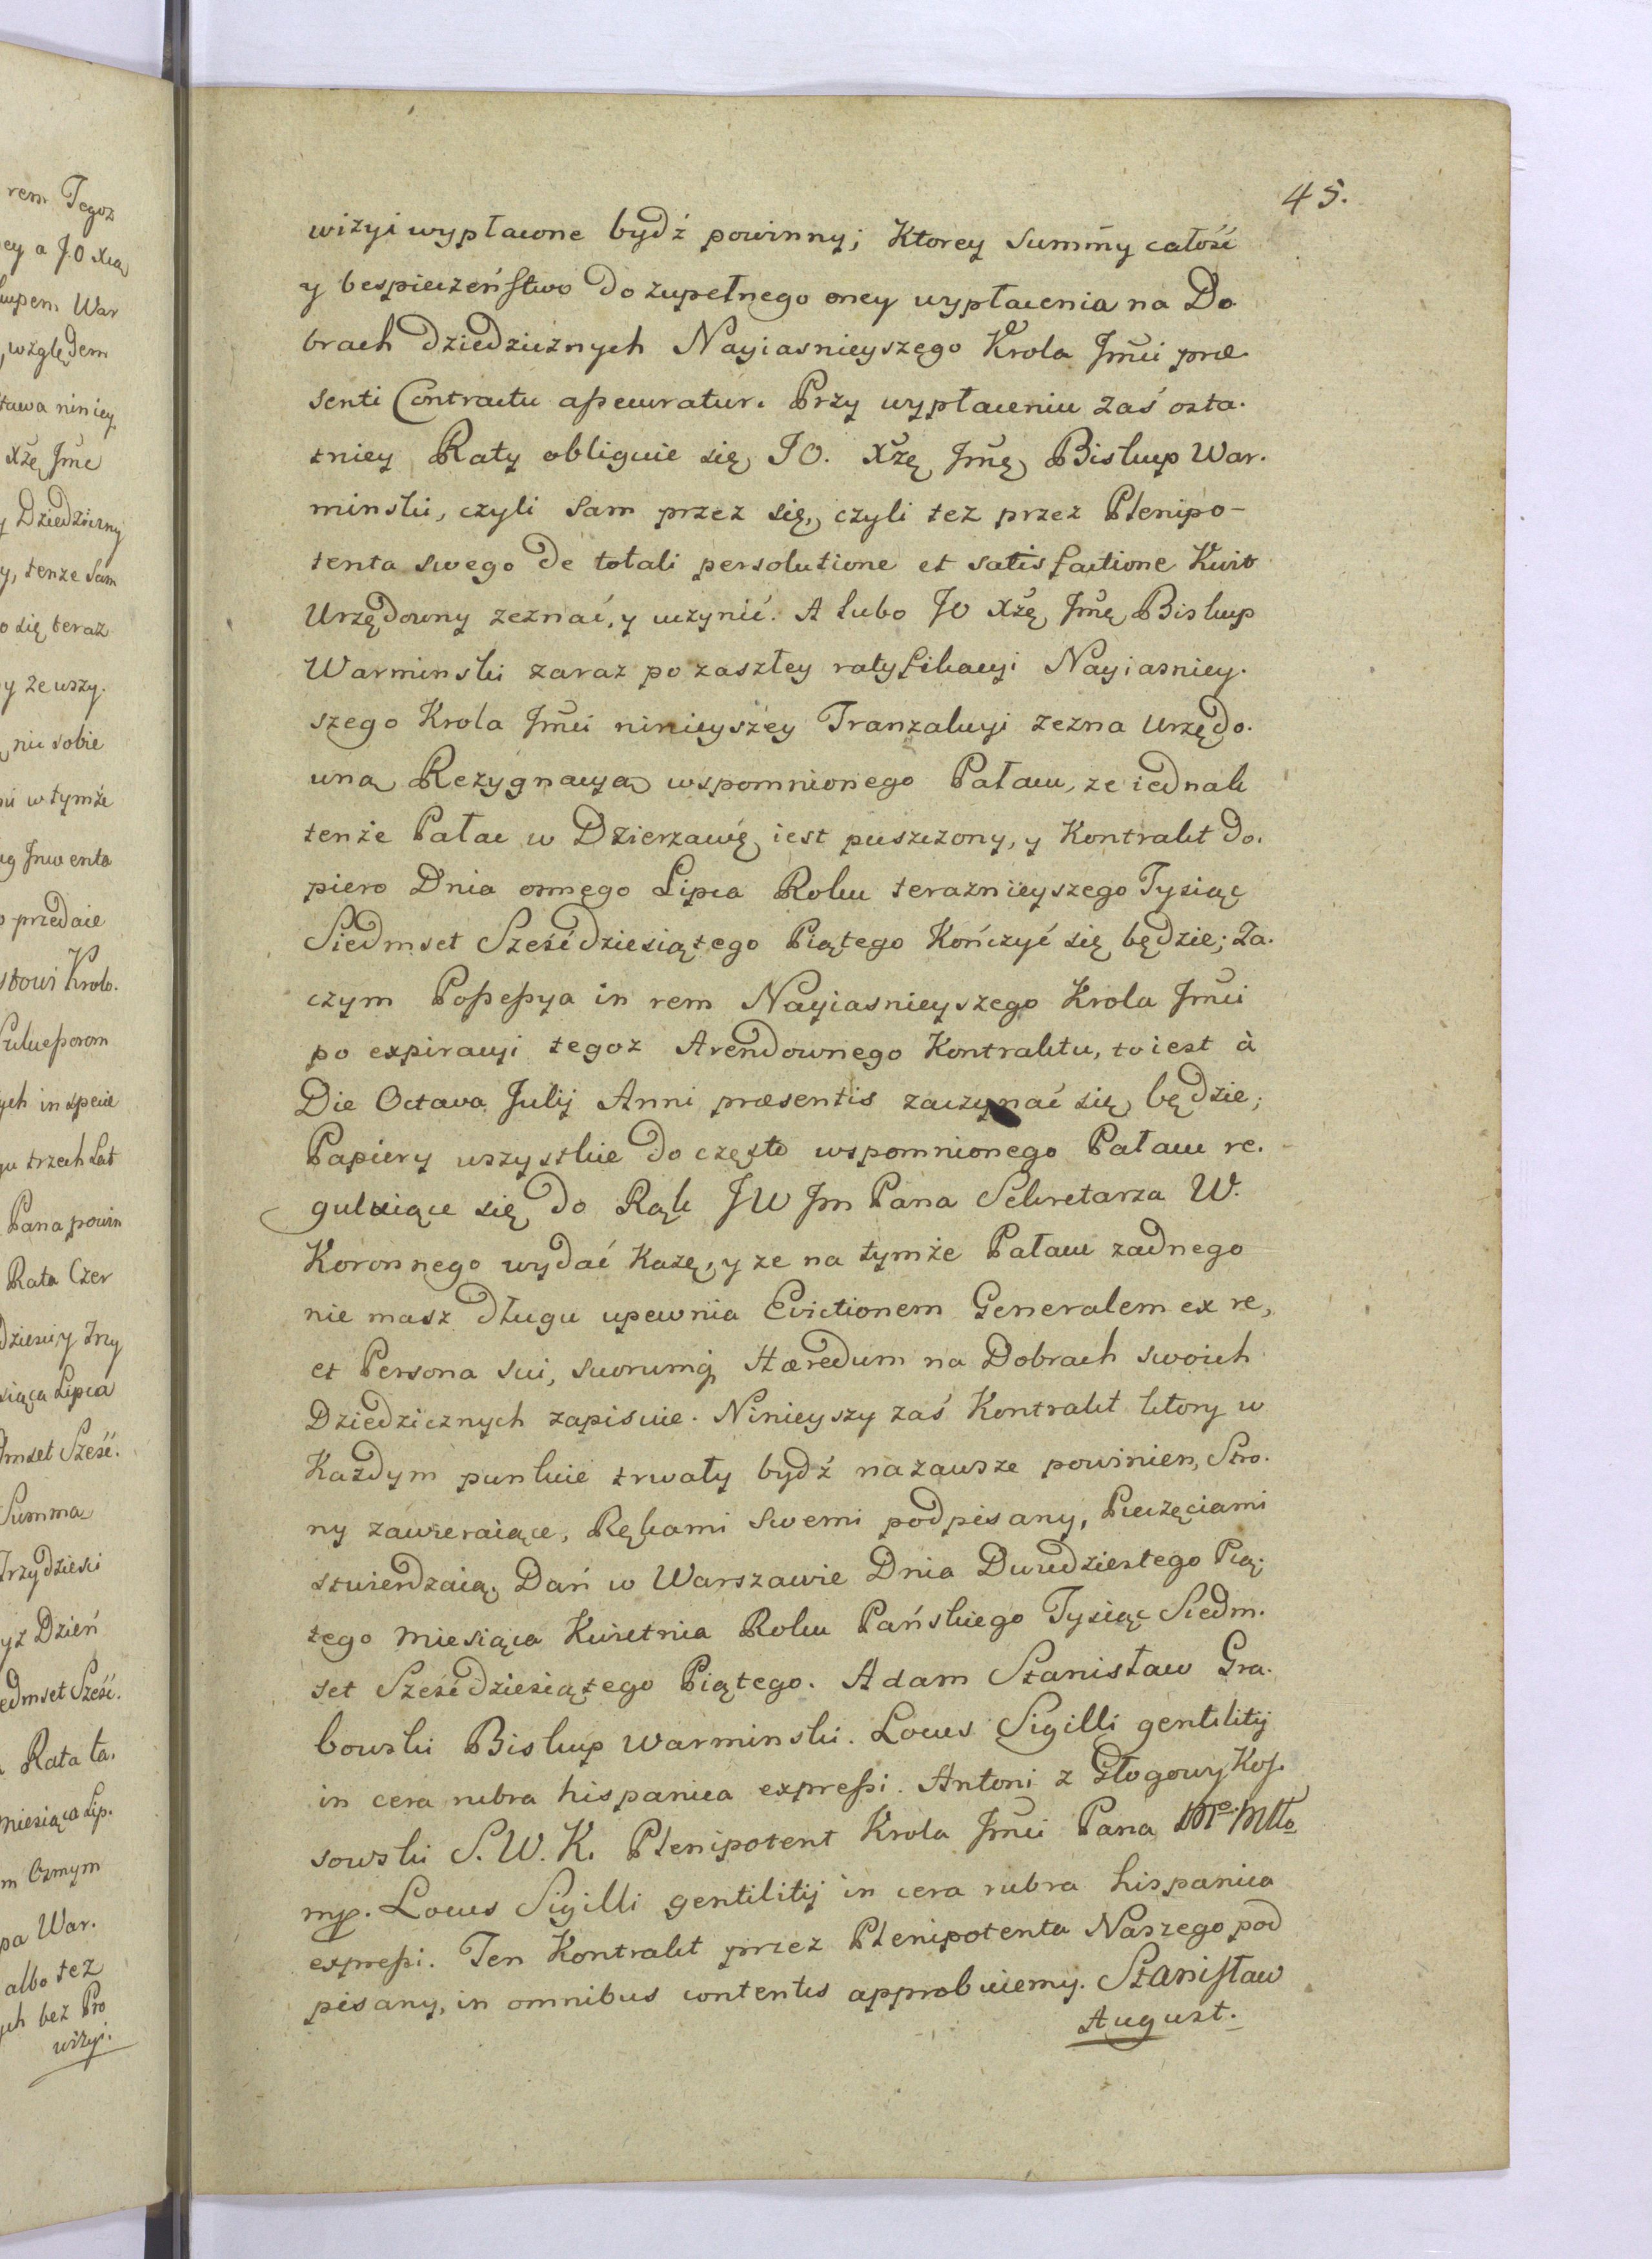 45.
wizyi wypłacone bydź powinny; Ktorey Summy całość
y bespieczeństwo do zupełnego oney wypłacenia na Do
brach dziedzicznych Nayiasnieyszego Krola Jmći præ
senti Contractu assecuratur. Przy wypłaceniu zaś osta.
tniey Raty obliguie się JO. Xżę Jmę Biskup War.
minski, czyli sam przez się, czyli tez przez Plenipo-
tenta swego de totali persolutione et satisfactione Kwit
Urzędowny zeznać, y uczynić. A lubo JO Xżę Jmę Biskup
Warminski zaraz po zaszłey ratyfikacyi Nayiasniey.
szego Krola Jmći ninieyszey Tranzakcyi zezna Urzędo.
wną Rezygnacyą wspomnionego Pałacu, ze iednak
tenże Pałac w Dzierzawę iest puszczony, y Kontrakt do.
piero Dnia osmego Lipca Roku teraznieyszego Tysiąc
Siedmset Sześćdziesiątego Piątego Kończyć się będzie; Za.
czym Possessya in rem Nayiasnieyszego Krola Jmći
po expiracyi tegoz Arendownego Kontraktu, to iest à
Die Octava Julij Anni præsentis zaczynać się będzie;
Papiery wszystkie do często wspomnionego Pałacu re.
guluiące się do Rąk JW Jm Pana Sekretarza W.
Koronnego wydać Każę, y ze na tymże Pałacu zadnego
nie masz długu upewnia Evictionem Generalem ex re,
et Persona sui, suorumq Hæredum na Dobrach swoich
Dziedzicznych zapisuie. Ninieyszy zaś Kontrakt ktory w
Kazdym punkcie trwały bydź nazawsze powinien, Stro.
ny zawieraiące, Rękami swemi podpisany, Pieczęciami
stwierdzaią. Dań w Warszawie Dnia Dwudziestego Pią.
tego Miesiąca Kwietnia Roku Pańskiego Tysiąc Siedm.
set Sześćdziesiątego Piątego. Adam Stanisław Gra.
bowski Biskup Warminski. Locus Sigilli gentilitij
in cera rubra hispanica expressi. Antoni z Głogowy Kos.
sowski S. W. K. Plenipotent Krola Jmći Pana Mgo Młło
mp. Locus Sigilli gentilitij in cera rubra hispanica
expressi. Ten Kontrakt przez Plenipotenta Naszego pod
pisany, in omnibus contentis approbuiemy. Stanisław
August.